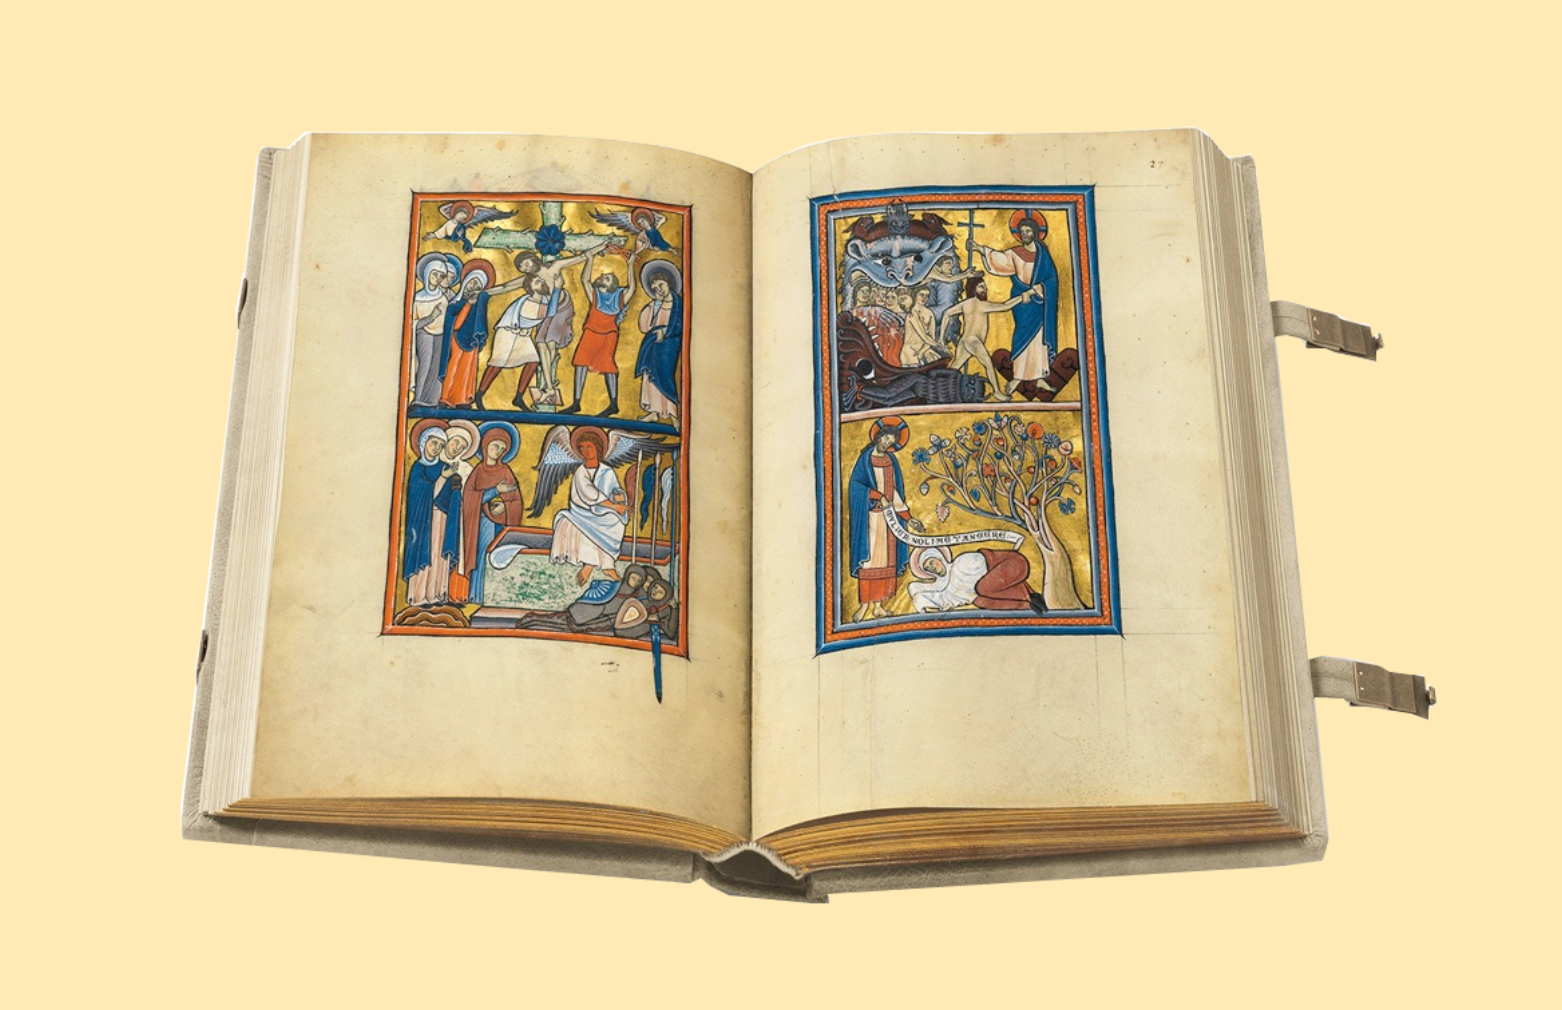 27
MVLIER NOLI ME TANGERE: